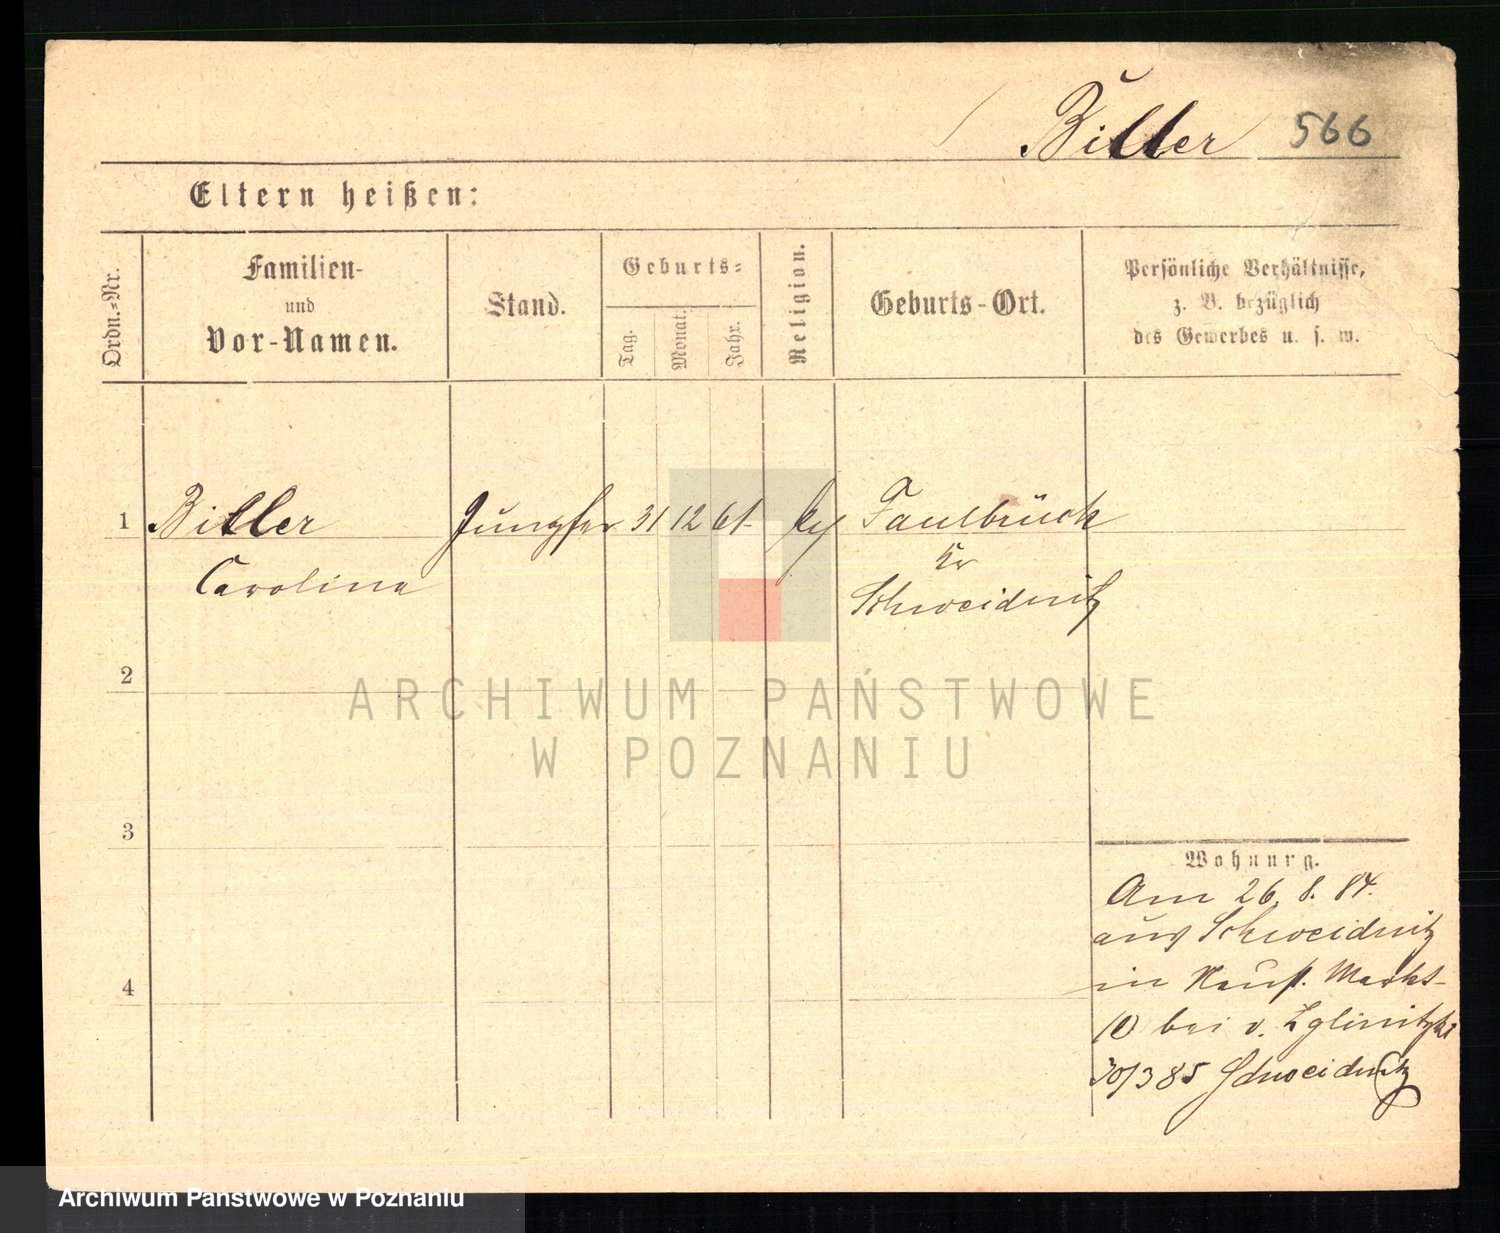 Biller 566
Eltern heißen:
Ordn.-Nr.
Familien-
und
Vor-Namen.
Stand.
Geburts-
Tag.
Monat.
Jahr.
Religion.
Geburts-Ort.
Persönliche Verhältnisse,
z. B. bezüglich
des Gewerbes u. s. w.
1 Biller Jungfer 31 12 61 Faulbrück
Carolina Kr
Schweidnitz
2
ARCHIWUM PAŃSTWOWE
W POZNANIU
3
Wohnung.
Am 26. 8. 84.
aus Schweidnitz
4
in
10 bei v.
30/3 85 Schweidnitz
Archiwum Państwowe w Poznaniu